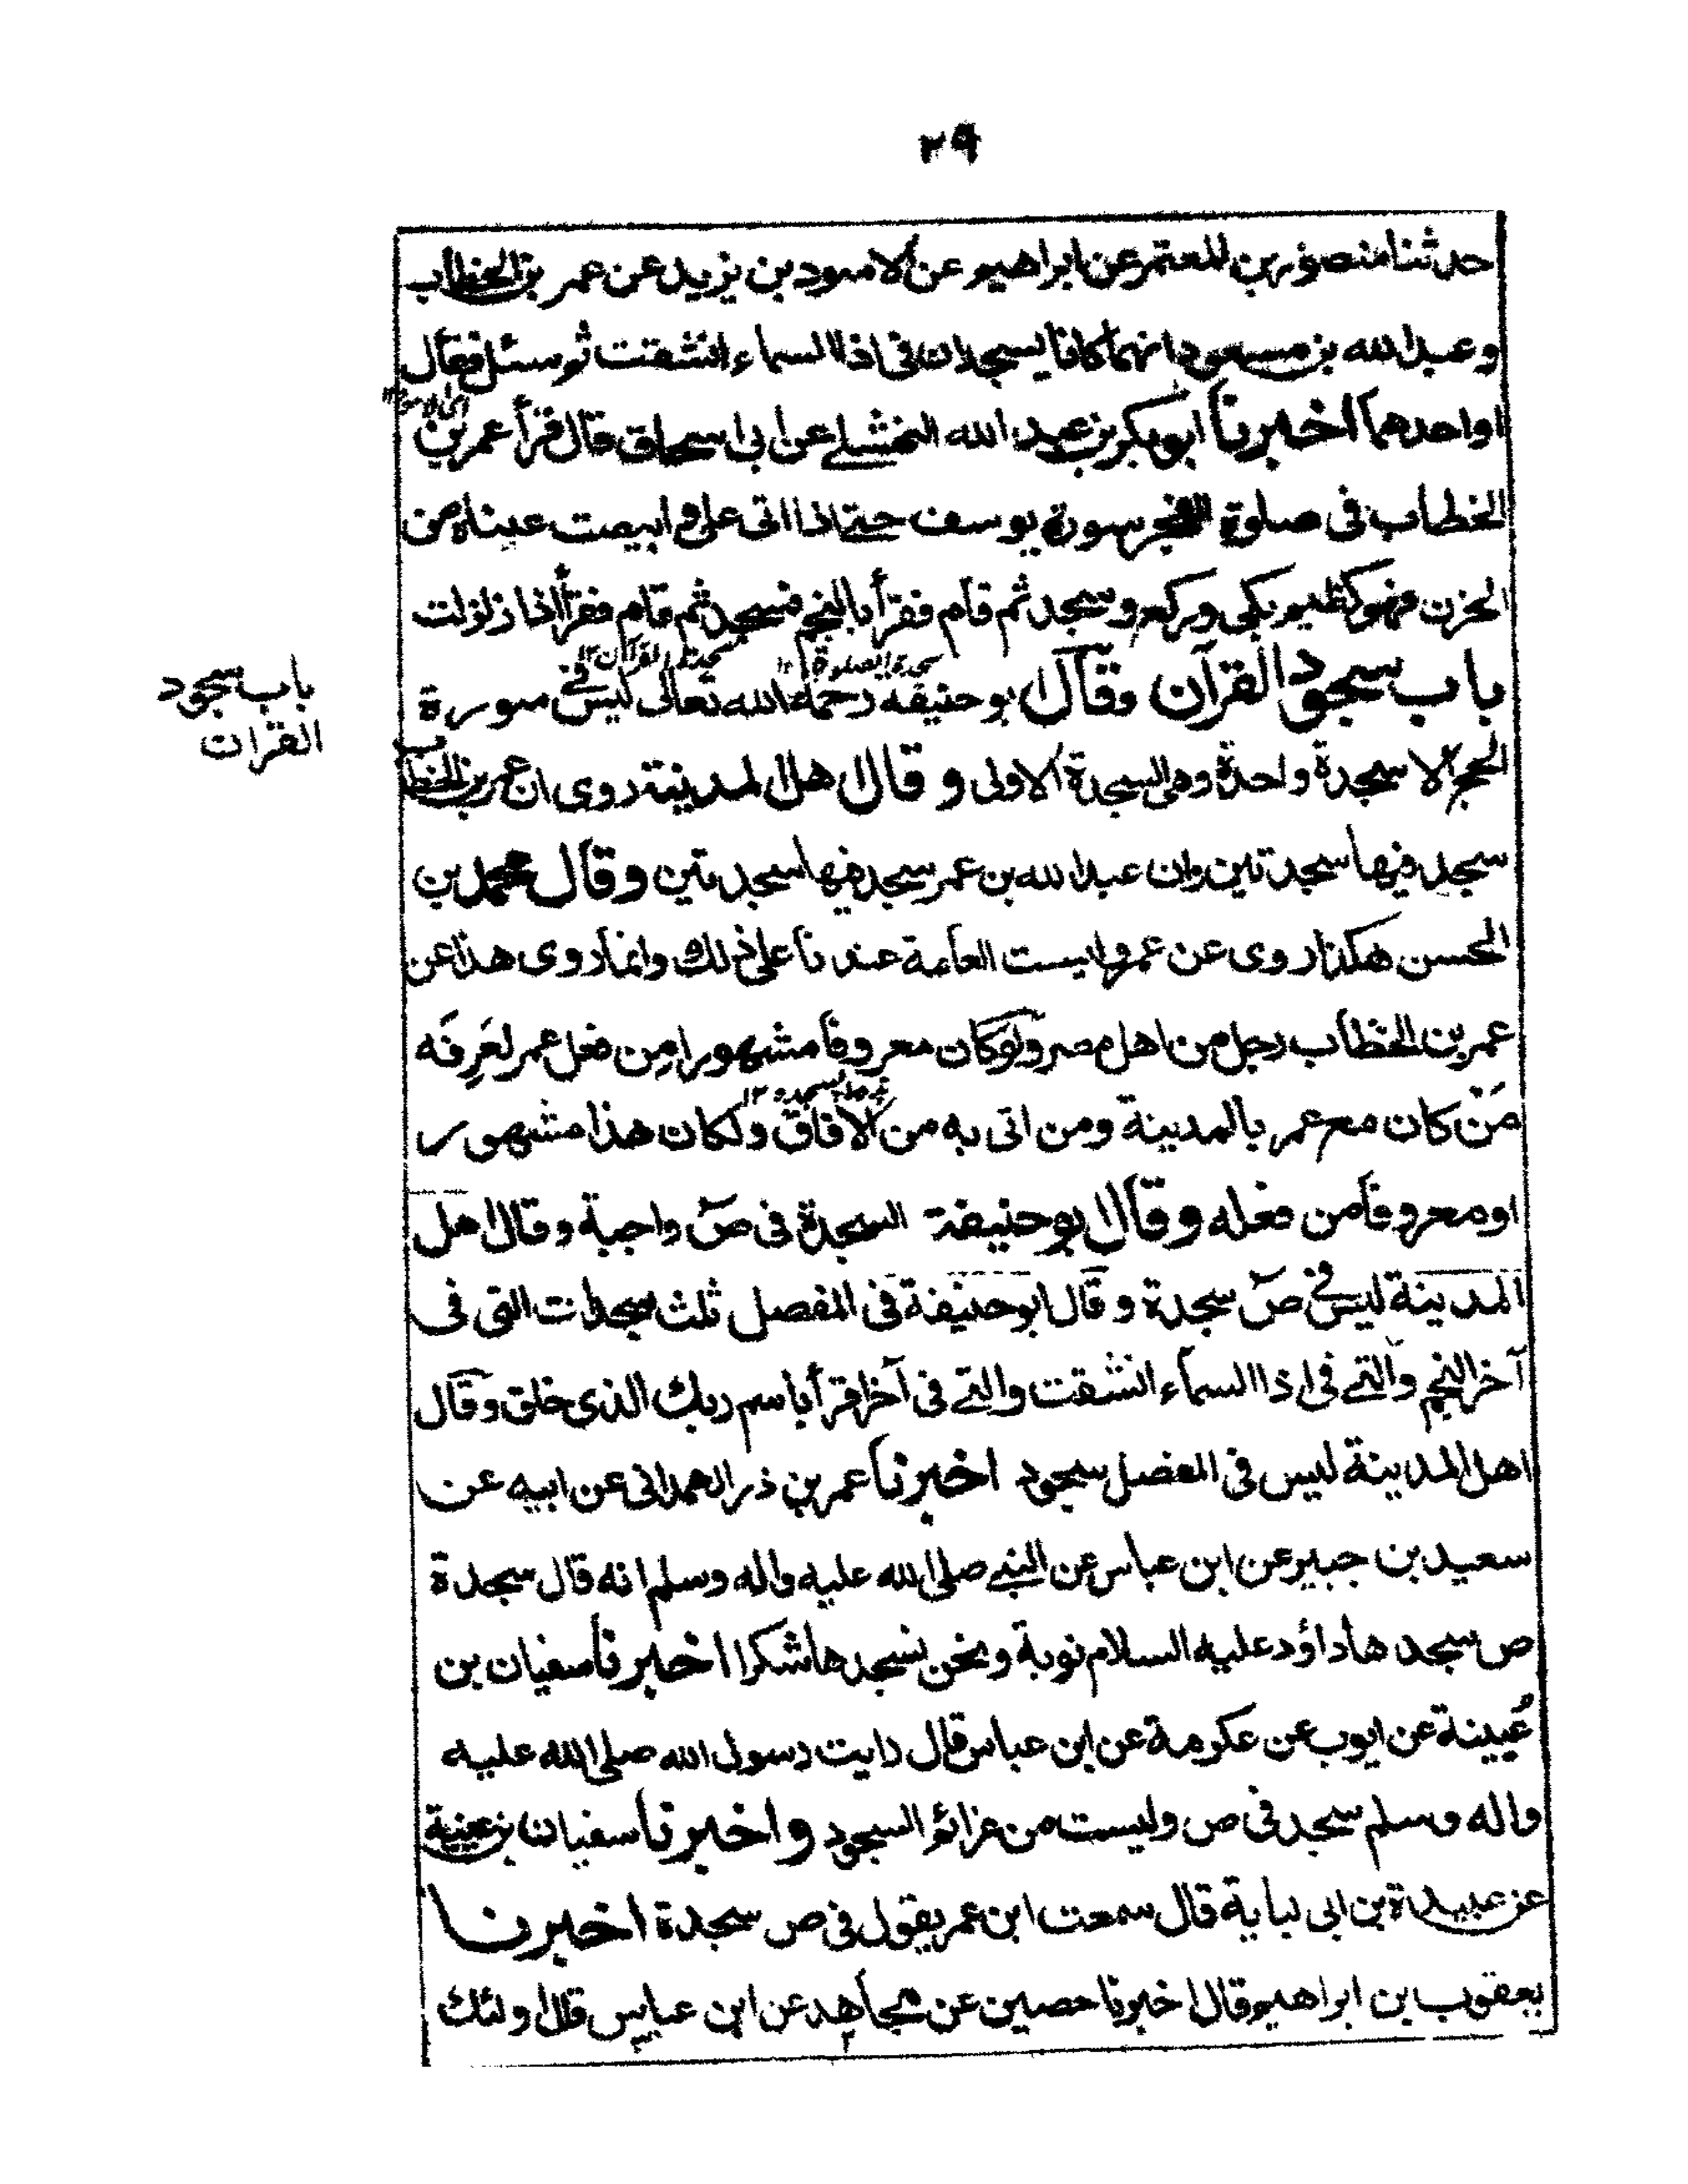 ٢٩
حدثنا منصور بن المعتمر عن ابراهيم عن الاسود بن يزيد عن عمر بن الخطاب
وعبد الله بن مسعود انهما كانا يسجدان فى اذا السماء انشقت ثم سئل فقال
او احدهما اخبرنا ابو بكر بن عبد الله النهشلے عن ابى اسحاق قال قرأ عمر بن
الخطاب فى صلوة الفجر سورة يوسف حتے اذا اتى على وابيضت عيناه من
الحزن فهو كظيم بكى وركع وسجد ثم قام فقرأ بالنجم فسجد ثم قام فقرأ اذا زلزلت
باب سجود القرآن وقال ابو حنيفه رحمة الله تعالى ليس فے سورة
باب سجود
القران
الحج الا سجدة واحدة وهى السجدة الاولى وقال اهل المدينة روى ان عمر بن الخطاب
سجد فيها سجدتين وان عبد الله بن عمر سجد فيها سجدتين وقال محمد بن
الحسن هكذا روى عن عمر وليست العامة عندنا على ذلك وانما روى هذا عن
عمر بن الخطاب رجل من اهل مصر ولو كان معروفا مشهورا مِن فعل عمر لعَرِفَه
مَنْ كان مع عمر بالمدينة ومن اتى به من الآفاق ولكان هذا مشهورا
او معروفا من فعله وقال ابو حنيفة السجدة فى صٓ واجبة وقال اهل
المدينة ليس فے صٓ سجدة وقال ابو حنيفة فى المفصل ثلث سجدات التى فى
آخر النجم والتے فى اذا السماء انشقت والتے فى آخر اقرأ باسم ربك الذى خلق وقال
اهل المدينة ليس فى المفصل سجود اخبرنا عمر بن ذر الهمدانى عن ابيه عن
سعيد بن جبير عن ابن عباس عن النبے صلى الله عليه واله وسلم انه قال سجدة
ص سجدها داؤد عليه السلام توبة ونحن نسجدها شكرا اخبرنا سفيان بن
عُيينة عن ايوب عن عكرمة عن ابن عباس قال رايت رسول الله صلى الله عليه
واله وسلم سجد فى ص وليست من عزائم السجود واخبرنا سفيان بن عيينة
عن عبيدة بن ابى لبابة قال سمعت ابن عمر يقول فى ص سجدة اخبرنا
يعقوب بن ابراهيم قال اخبرنا حصين عن مجاهد عن ابن عباس قال اولئك